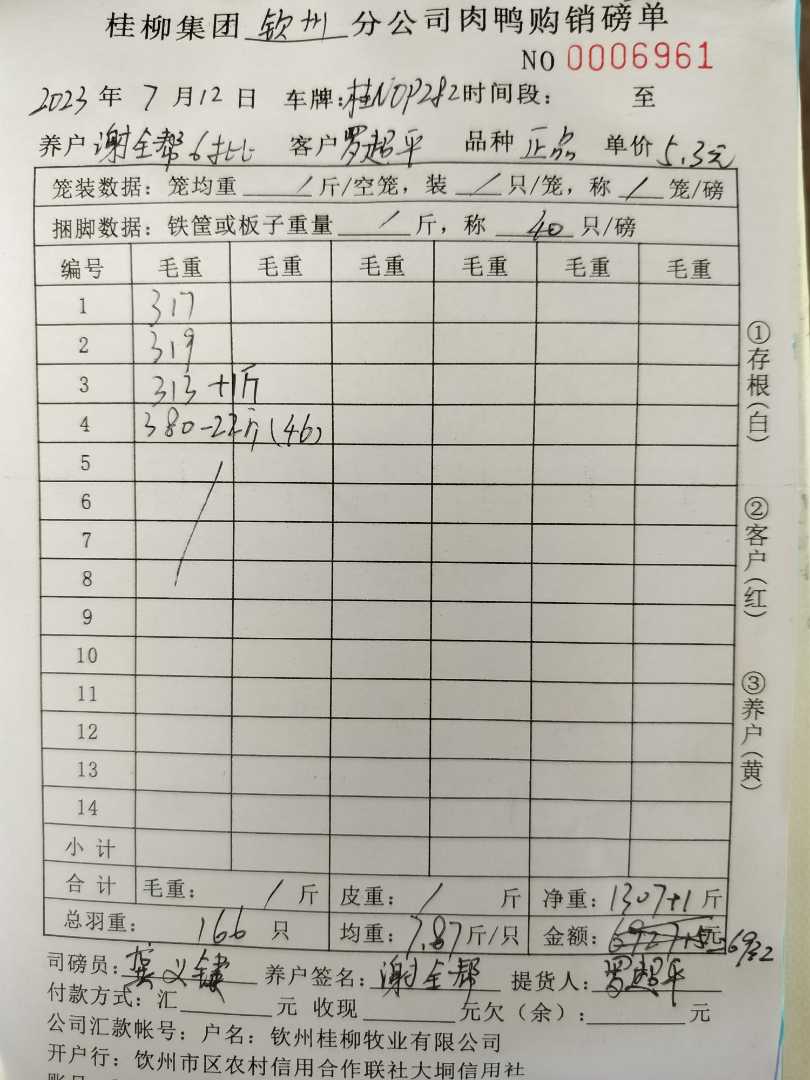 桂柳集团 钦州 分公司肉鸭购销磅单
NO 0006961
2023 年 7 月 12 日 车牌：桂N0P282 时间段： 至
养户 谢全帮 6批 客户 罗超平 品种 正品 单价 5.3元
笼装数据：笼均重 / 斤/空笼，装 / 只/笼，称 / 笼/磅
捆脚数据：铁筐或板子重量 / 斤，称 40 只/磅
编号 毛重 毛重 毛重 毛重 毛重 毛重
1 317
2 319
3 313+1斤
4 380-22斤(46)
5
6
7
8
9
10
11
12
13
14
小计
合计 毛重： / 斤 皮重： / 斤 净重：1307+1 斤
总羽重： 166 只 均重：7.87 斤/只 金额： 元 6932
司磅员： 养户签名：谢全帮 提货人：罗超平
付款方式：汇 元 收现 元欠（余）： 元
公司汇款帐号：户名：钦州桂柳牧业有限公司
开户行：钦州市区农村信用合作联社大垌信用社
①存根(白)
②客户(红)
③养户(黄)